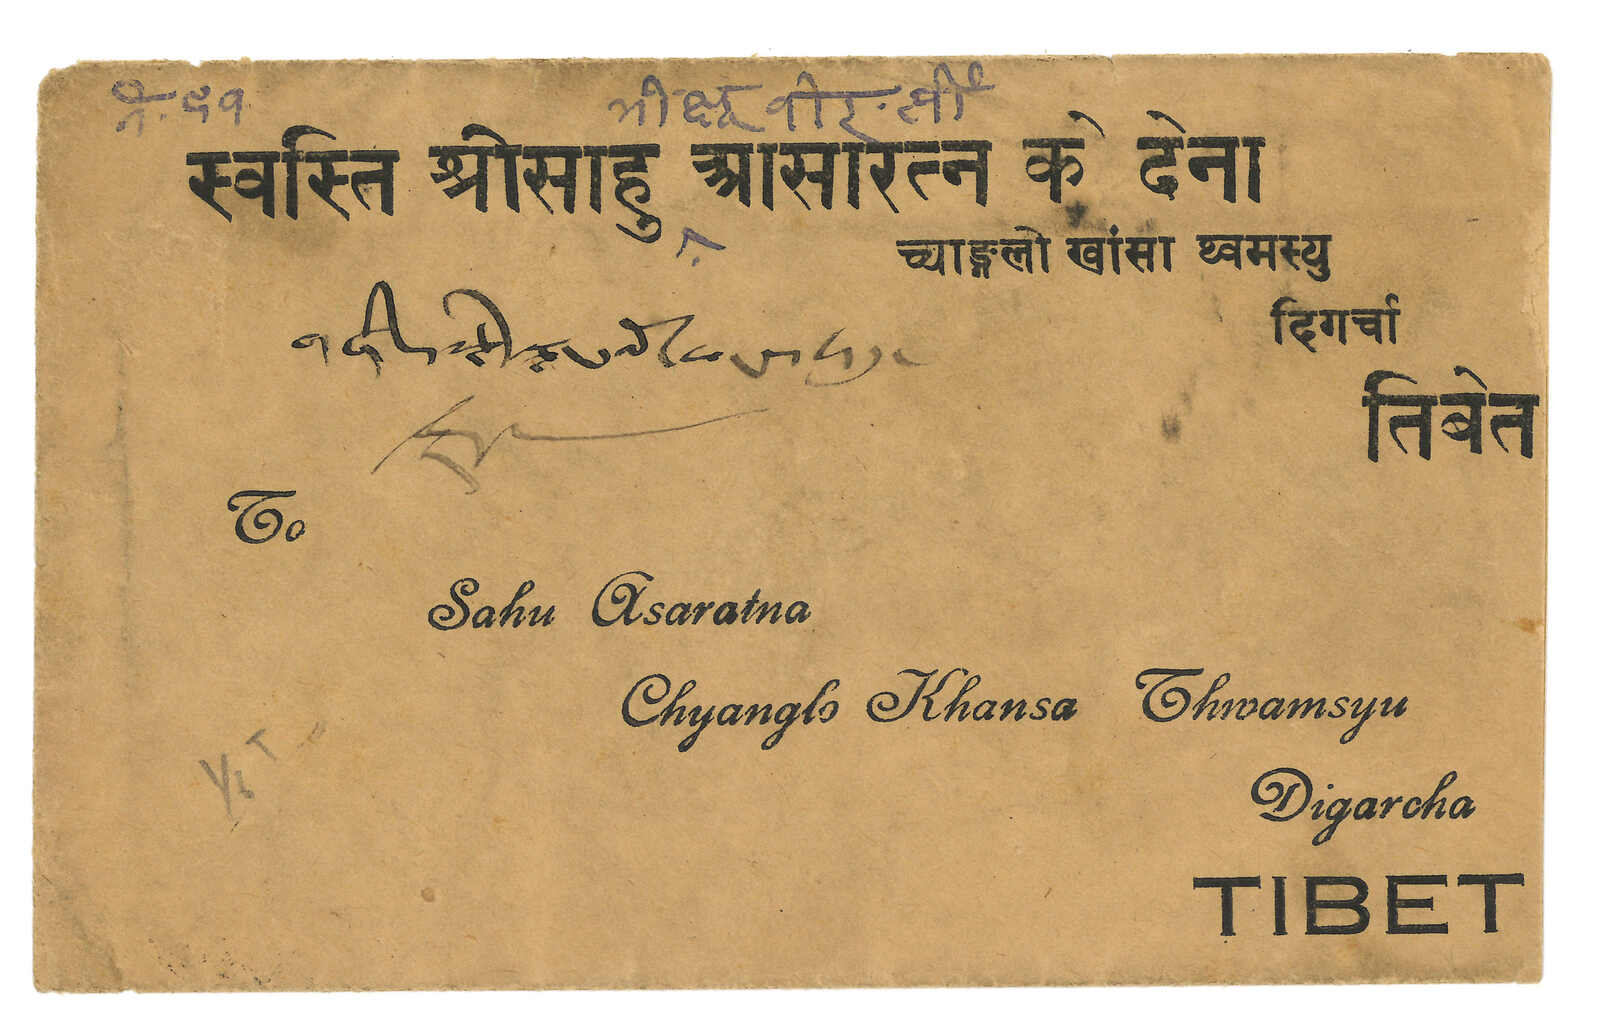 स्वस्ति श्रीसाहु आसारत्न के देना
च्याङ्गलो खांसा थ्वमस्यु
दिगर्चा
तिबेत
To
Sahu Asaratna
Chyanglo Khansa Thwamsyu
Digarcha
TIBET